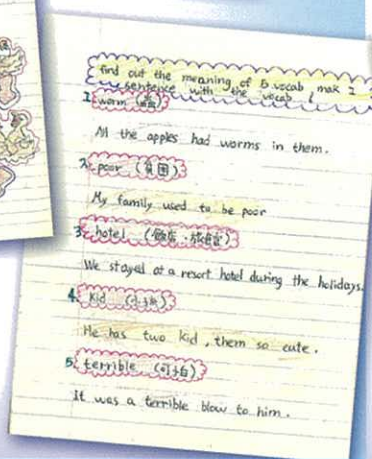 find out the meaning of 5 vocab mak 1
sentence with the vocab !
1. worm
All the apples had worms in them.
2. poor (貧困)
My family used to be poor
3. hotel (飯店、旅館)
We stayed at a resort hotel during the holidays.
4. Kid
He has two kid , them so cute .
5. terrible (可怕)
It was a terrible blow to him .